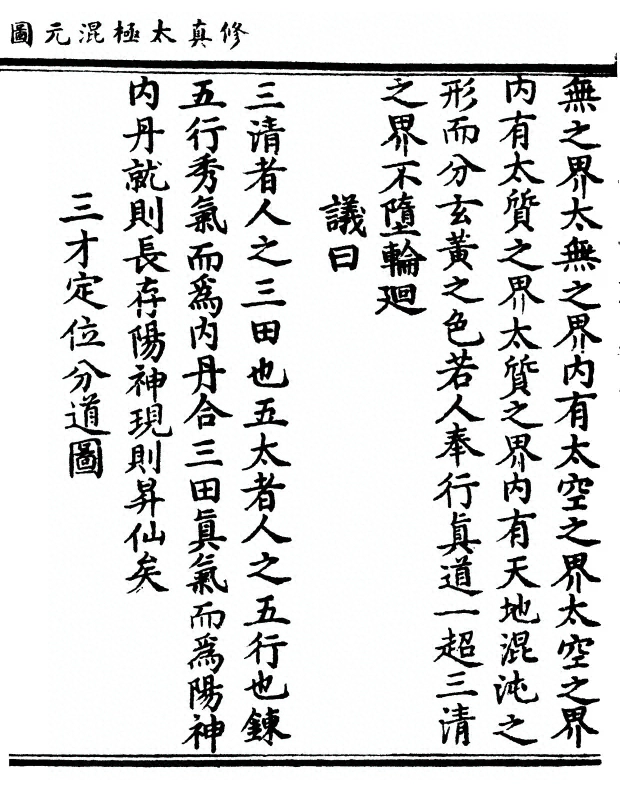 修真太極混元圖
無之界太無之界内有太空之界太空之界
内有太質之界太質之界内有天地混沌之
形而分玄黃之色若人奉行眞道一超三清
之界不墮輪廻
議曰
三清者人之三田也五太者人之五行也鍊
五行秀氣而爲内丹合三田眞氣而爲陽神
内丹就則長存陽神現則昇仙矣
三才定位分道圖